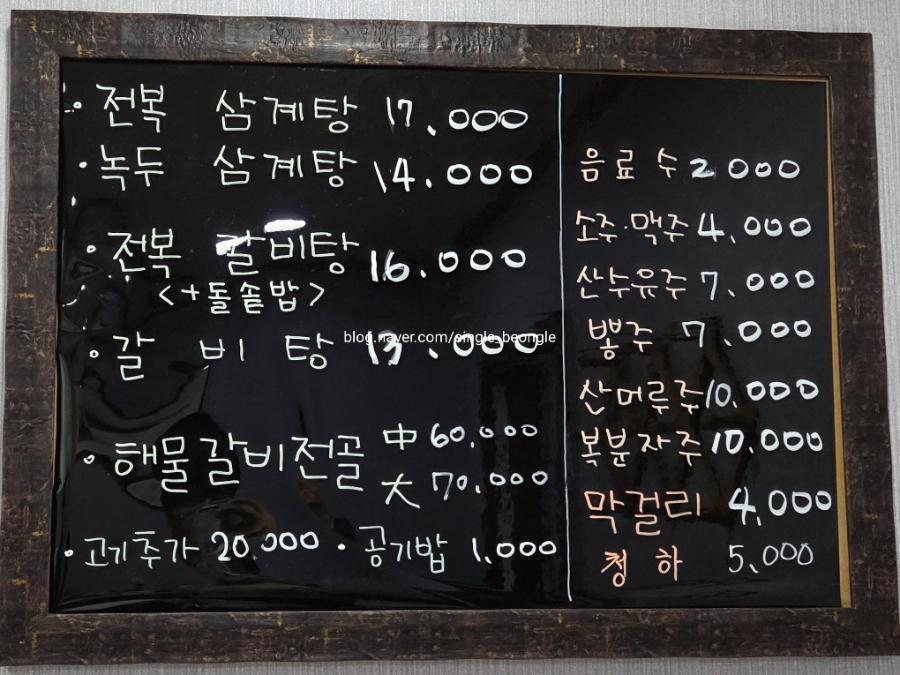 · 전복 삼계탕 17.000
· 녹두 삼계탕 14.000
· 전복 갈비탕 16.000
<+돌솥밥>
· 갈 비 탕 13.000
· 해물갈비전골 中 60.000
大 70.000
· 고기추가 20.000 · 공기밥 1.000
음료수 2000
소주·맥주 4.000
산수유주 7.000
뽕주 7.000
산머루주 10.000
복분자주 10.000
막걸리 4.000
청하 5.000
blog.naver.com/single_beongle